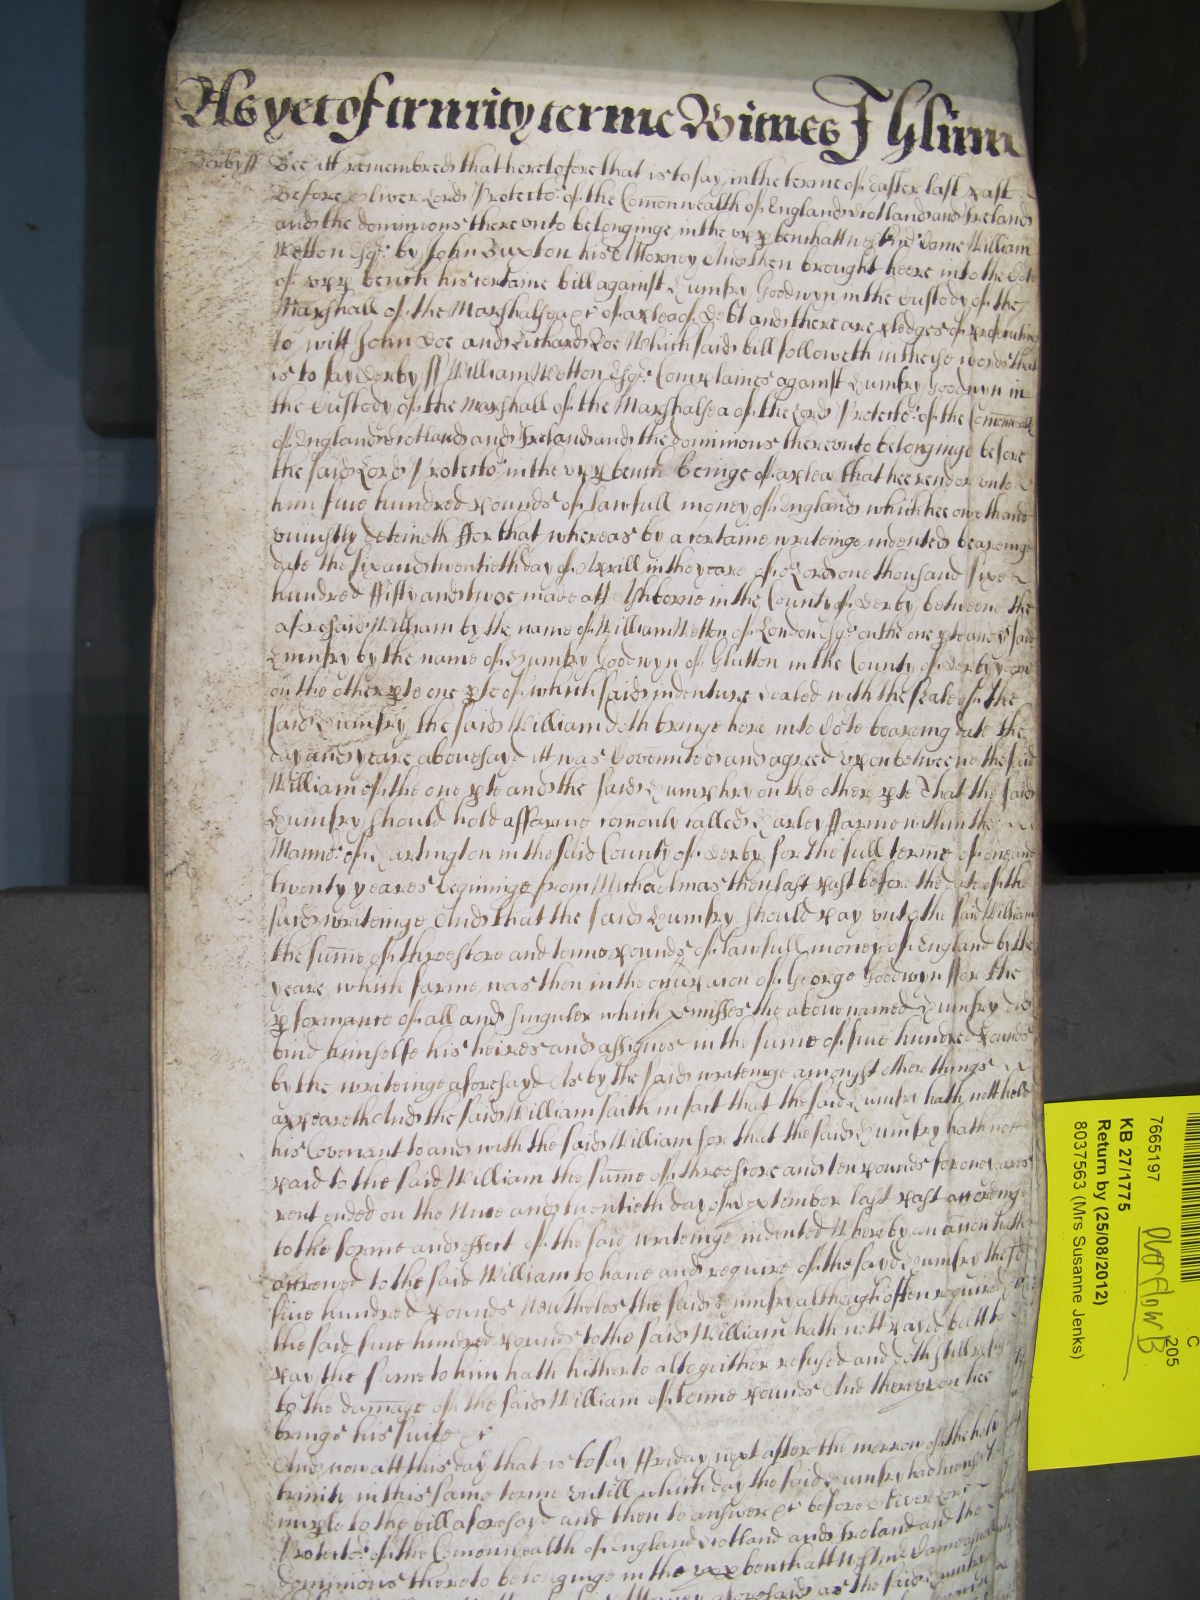 As yet of trinity terme Witnes
Derby ss Bee itt remembred that heretofore that is to say in the terme of Easter last past
Before Oliver Lord Protector of the Comonwealth of England Scotland and Ireland
and the dominions thereunto belonginge in the upp bench att Westmr Came William
Wotton Esqr by John Buxton his Attorney And then brought heere into the Cort
of upp bench his certaine bill against Humfry Goodwyn in the Custody of the
Marshall of the Marshalsea &c of a plea of Debt and there are pledges of prosecuting
to witt John Doe and Richard Roe Which said bill followeth in these words that
is to say Derby ss William Wotton Esqr Complaines against Humfry Goodwyn in
the Custody of the Marshall of the Marshalsea of the Lord Protector of the Comonwealth
of England Scotland and Ireland and the dominions thereunto belonginge before
the said Lord Protector in the upp bench beinge of a plea that hee render unto
him five hundred pounds of lawfull money of England which hee oweth and
uniustly deteineth ffor that whereas by a certaine writeinge indented beareinge
date the six and twentieth day of Aprill in the yeare of or Lord one thousand sixe
hundred ffifty and twoe made att Ashborne in the County of Derby betweene the
aforesaid William by the name of William Wotton of London Esqr on the one pte and ye said
Humfry by the name of Humfry Goodwyn of Glutton in the County of Derby yeom
on the other pte one pte of which said indenture Sealed with the Seale of the
said Humfry the said William doth bringe here into Cote beareing date the
day and yeare abovesayd itt was Covennted and agreed upon betweene the said
William of the one pte and the said Humphry on the other pte That the said
Humfry should hold a ffarme comonly called Harley ffarme within the
Mannor of Hartington in the said County of Derby for the full terme of one and
twenty yeares beginninge from Michaelmas then last past before the date of the
said writeinge And that the said Humfry should pay unto the said William
the sume of threescore and tenne pounds of lawfull money of England by the
yeare which farme was then in the occupacon of George Goodwyn ffor the
pformance of all and singuler which pmisses the above named Humfry did
bind himselfe his heires and assignes in the sume of five hundred pounds
by the writeinge aforesayd As by the said writeinge amongst other things
appeareth And the said William saith in fact that the said Humfry hath nott held
his Covenant to and with the said William for that the said Humfry hath not
paid to the said William the sume of threescore and ten pounds for one yeares
rent ended on the Nine and twentieth day of September last past according
to the forme and effect of the said writeinge indented Whereby an accon hath
accrewed to the said William to have and require of the sayd Humfry the sd
five hundred pounds Nevtheles the said Humfry although often required
the said five hundred pounds to the said William hath nott payd butt to
pay the same to him hath hitherto altogeither refused and doth still refuse
to the damage of the said William of tenne pounds And thereupon hee
brings his suite &c
And now att this day that is to say ffriday next after the morrow of the holy
trinity in this same terme untill which day the said Humfry had
imple to the bill aforesayd and then to answere &c before Oliver Lord
Protector of the Comonwealth of England Scotland and Ireland and the
dominions thereto belonginge in the upp bench att Westmr Came
aforesaid as the said Humfry
7665197
KB 27/1775
Return by (25/08/2012)
8037563 (Mrs Susanne Jenks)
Overflow B
C
205